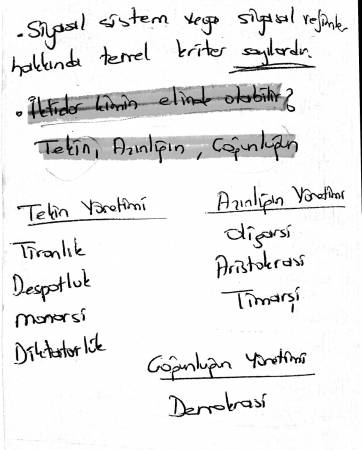 . Siyasal sistem veya siyasal rejimler
hakkında temel kriter sayılardır.
. İktidar kimin elinde olabilir?
Tekin, Azınlığın, Çoğunluğun
Tekin Yönetimi
Tiranlık
Despotluk
monarşi
Diktatörlük
Azınlığın Yönetimi
oligarşi
Aristokrasi
Timarşi
Çoğunluğun Yönetimi
Demokrasi